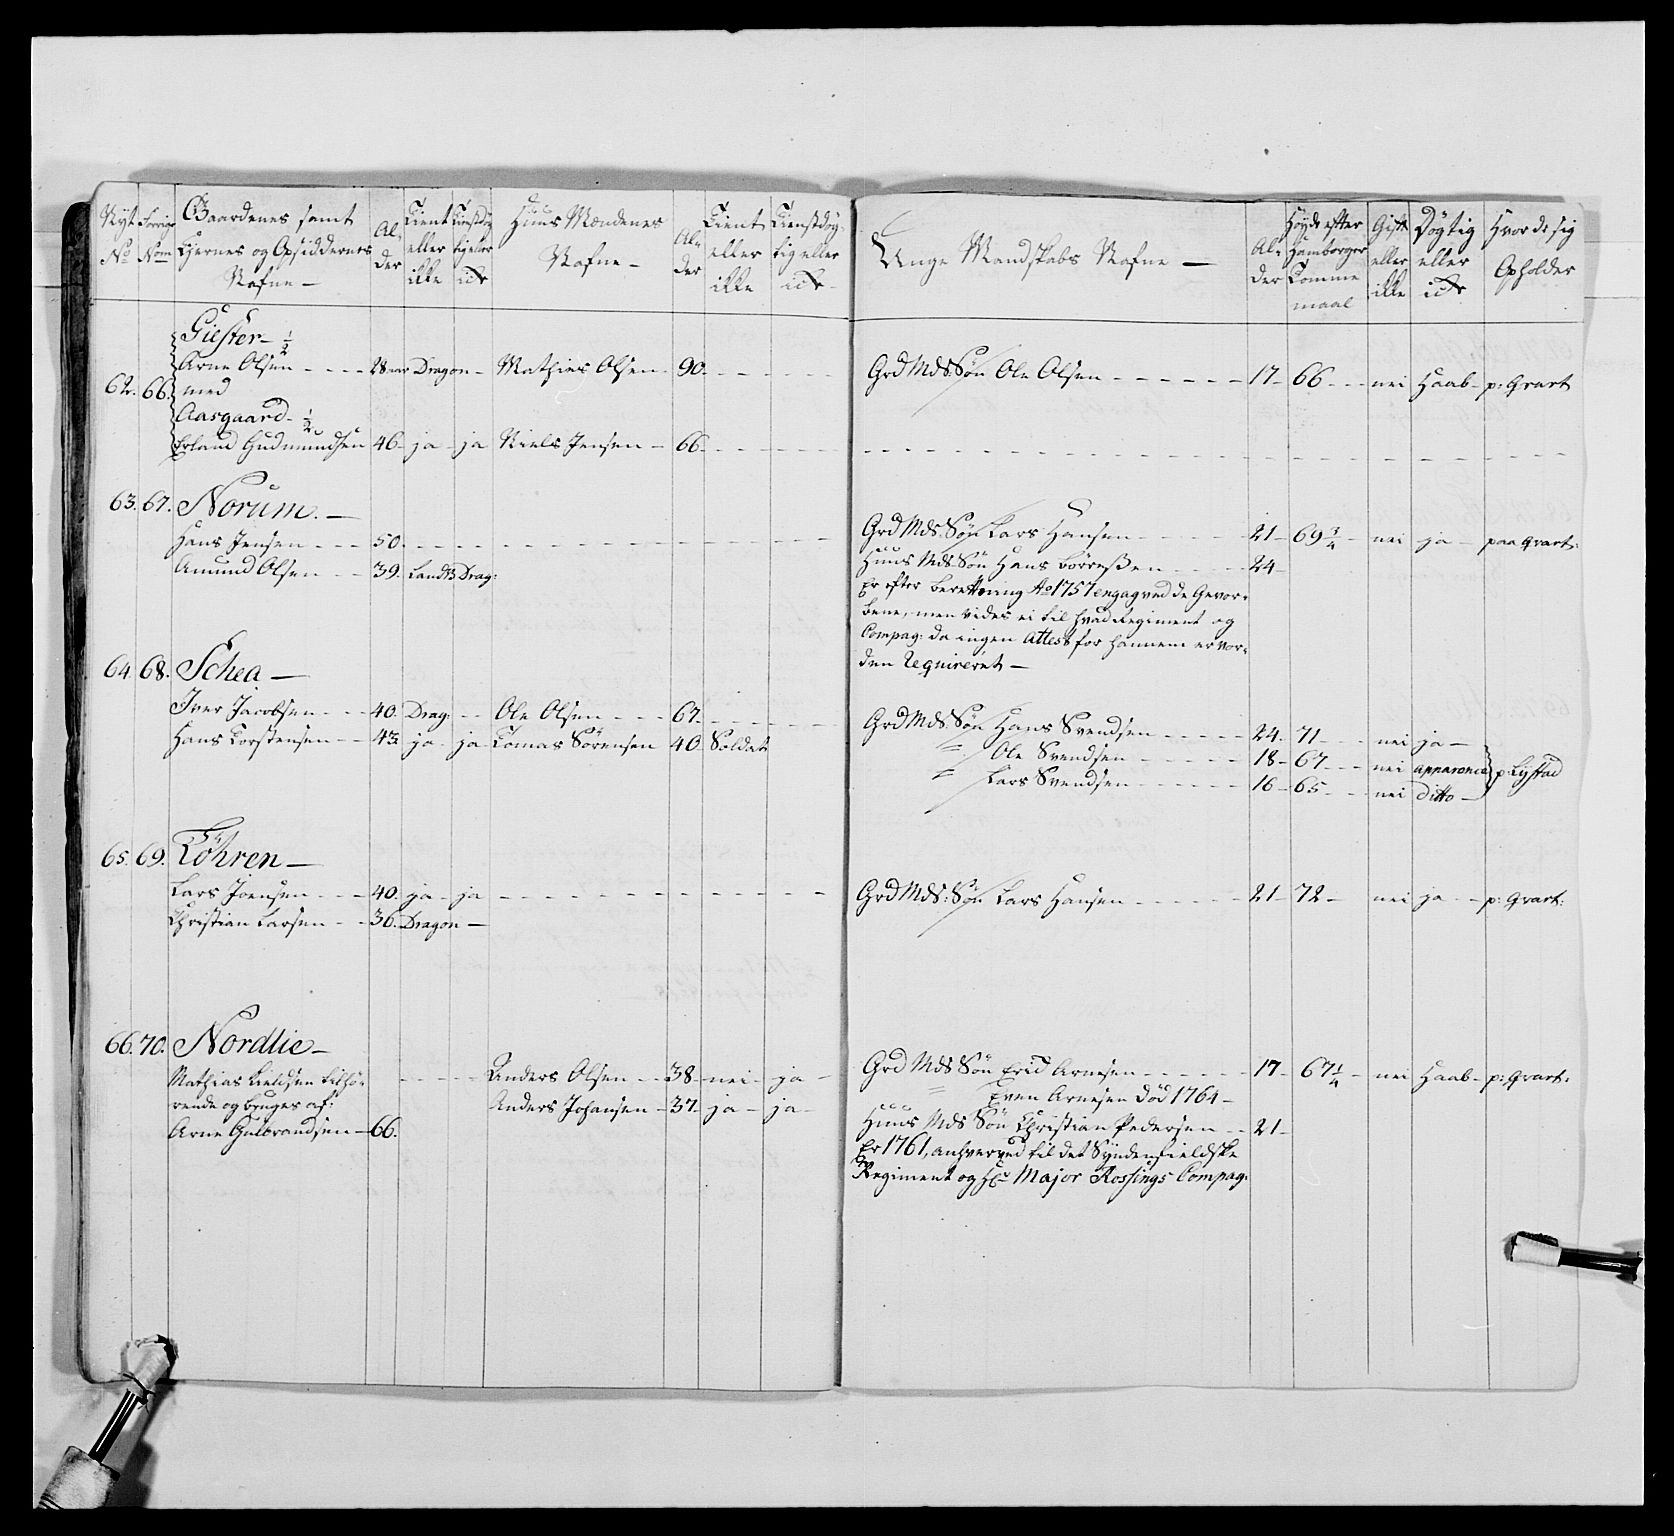 Nyt No
Forrige Nom
Gaardenes samt Eyernes og Opsiddernes Nafne —
Alder
Tient eller ikke
Tienstdygtig eller icke
Huus Mændenes Nafne —
Alder
Tient eller ikke
Tienstdygtig eller icke
Unge Mandskabs Nafne —
Alder
Høyde efter Hamborger Tomme maal
Gift eller ikke
Dygtig eller icke
Hvor de sig Opholder
62. 66. Giester — 1/2
Arne Olsen - - - - 28 aar Dragon — Mathies Olsen 90. - - - - Grd Mds: Søn Ole Olsen - - - - - 17 — 66 - - - nei Haab — p: Qvart
med
Aasgaard — 1/2
Erland Gudmundsen 46 — ja — ja Niels Jensen — 66. - - - -
63. 67. Norum. —
Hans Jensen - - - 50. - - - - Grd Mds: Søn Lars Hansen - - - - - 21 — 69 3/4 — nei — ja — paa Qvart:
Amund Olsen - - 39. Landts Drag: Huus Mds Søn Hans Børreßen - - - - 24 —
Er efter beretning Ao 1757 engag ved de Gevor=
bene, men vides ei til hvad Regiment og
Compag: da ingen Attest for hannem er vor=
den requireret —
64. 68. Schea —
Iver Jacobsen - - - 40. Drag: - - Ole Olsen - - - 67. - - - - Grd Mds: Søn Hans Svendsen - - - - - 24. 71 - - - nei ja —
Hans Torstensen - - 43. ja — ja Tomas Sørensen 40. Soldat " Ole Svendsen - - - - - 18 — 67 - - - nei apparence p: Lystad
" Lars Svendsen - - - - - 16 — 65 - - - nei ditto —
65. 69. Töhren —
Lars Joensen - - - 40. ja — ja - - - - Grd Mds: Søn Lars Hansen - - - - - 21 — 72 — nei ja - - p: Qvart:
Christian Larsen - - 36. Dragon —
66. 70. Nordlie —
Mathias Kieldsen tilhø= - - - - Anders Olsen - - 38 — nei — ja — Grd Mds Søn Erid Arnesen - - - - - 17 — 67 1/4 — nei Haab — p: Qvart:
rende og bruges af: Anders Johansen — 37 — ja — ja — " Even Arnesen død 1764 —
Arne Gulbrandsen — 66. Huus Mds Søn Christian Pedersen - - 21 —
Er 1761, anhverved til det Syndenfieldske
Regiment og Hr Major Rossings Compag: